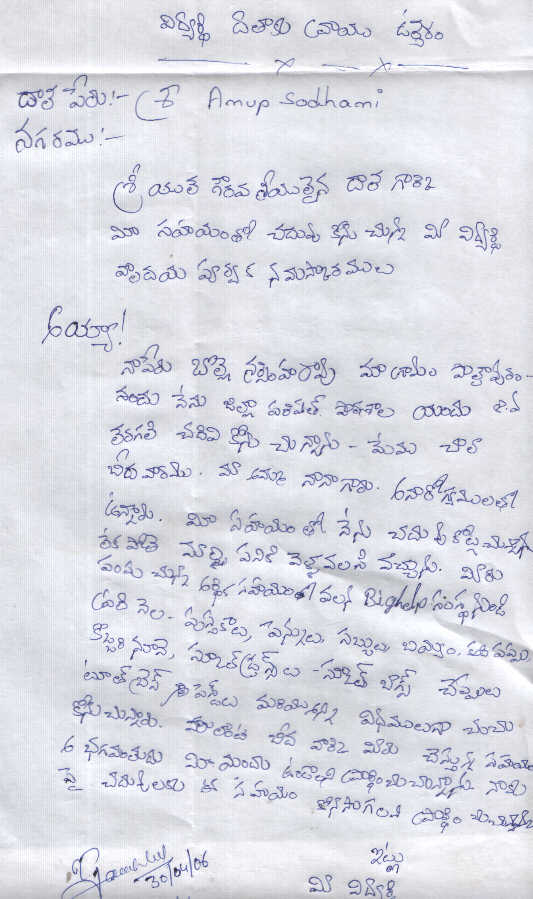 విద్యార్థి దాతకు వ్రాయు ఉత్తరం
దాత పేరు:- శ్రీ Anup Sodhani
నగరము:-
శ్రీయుత గౌరవనీయులైన దాత గారికి
మీ సహాయంతో చదువుకొనుచున్న మీ విద్యార్థి
హృదయ పూర్వక నమస్కారములు
అయ్యా!
నాపేరు బొల్లె నర్సింహారావు మా గ్రామం
నందు నేను జిల్లా పరిషత్ పాఠశాల యందు 8.వ
తరగతి చదివి కొను చున్నాను - మేము చాలా
బీద వారము. మా అమ్మ నాన్నగారు. అనారోగ్యములతో
ఉన్నారు. మీ సహాయం తో నేను చదువు కొట్లు చున్నాను
లేక పోతే నాన్ని పనికి వెళ్ళవలసి వచ్చును. మీరు
పంపు చున్న ఆర్థిక సహాయం వలన Bighelp సంస్థ నుండి
ప్రతి నెల. పుస్తకాలు, పెన్నులు, సబ్బులు, బియ్యం,
కొబ్బరి నూనె, స్కూల్ డ్రస్ లు - స్కూల్ బాగ్స్ చెప్పులు
టూత్ బ్రష్ పేస్ట్ లు మరియు అన్ని విధములుగా
కొనుచున్నారు. బీద వారికి మీరు చేస్తున్న సహాయం
ఆ భగవంతుడు మీ యందు ఉండాలని ప్రార్థించుచున్నాను నాకు
పై చదువులకు ఈ సహాయం కొనసాగాలని ప్రార్థించుచున్నాను
30/04/06
ఇట్లు
మీ విద్యార్థి